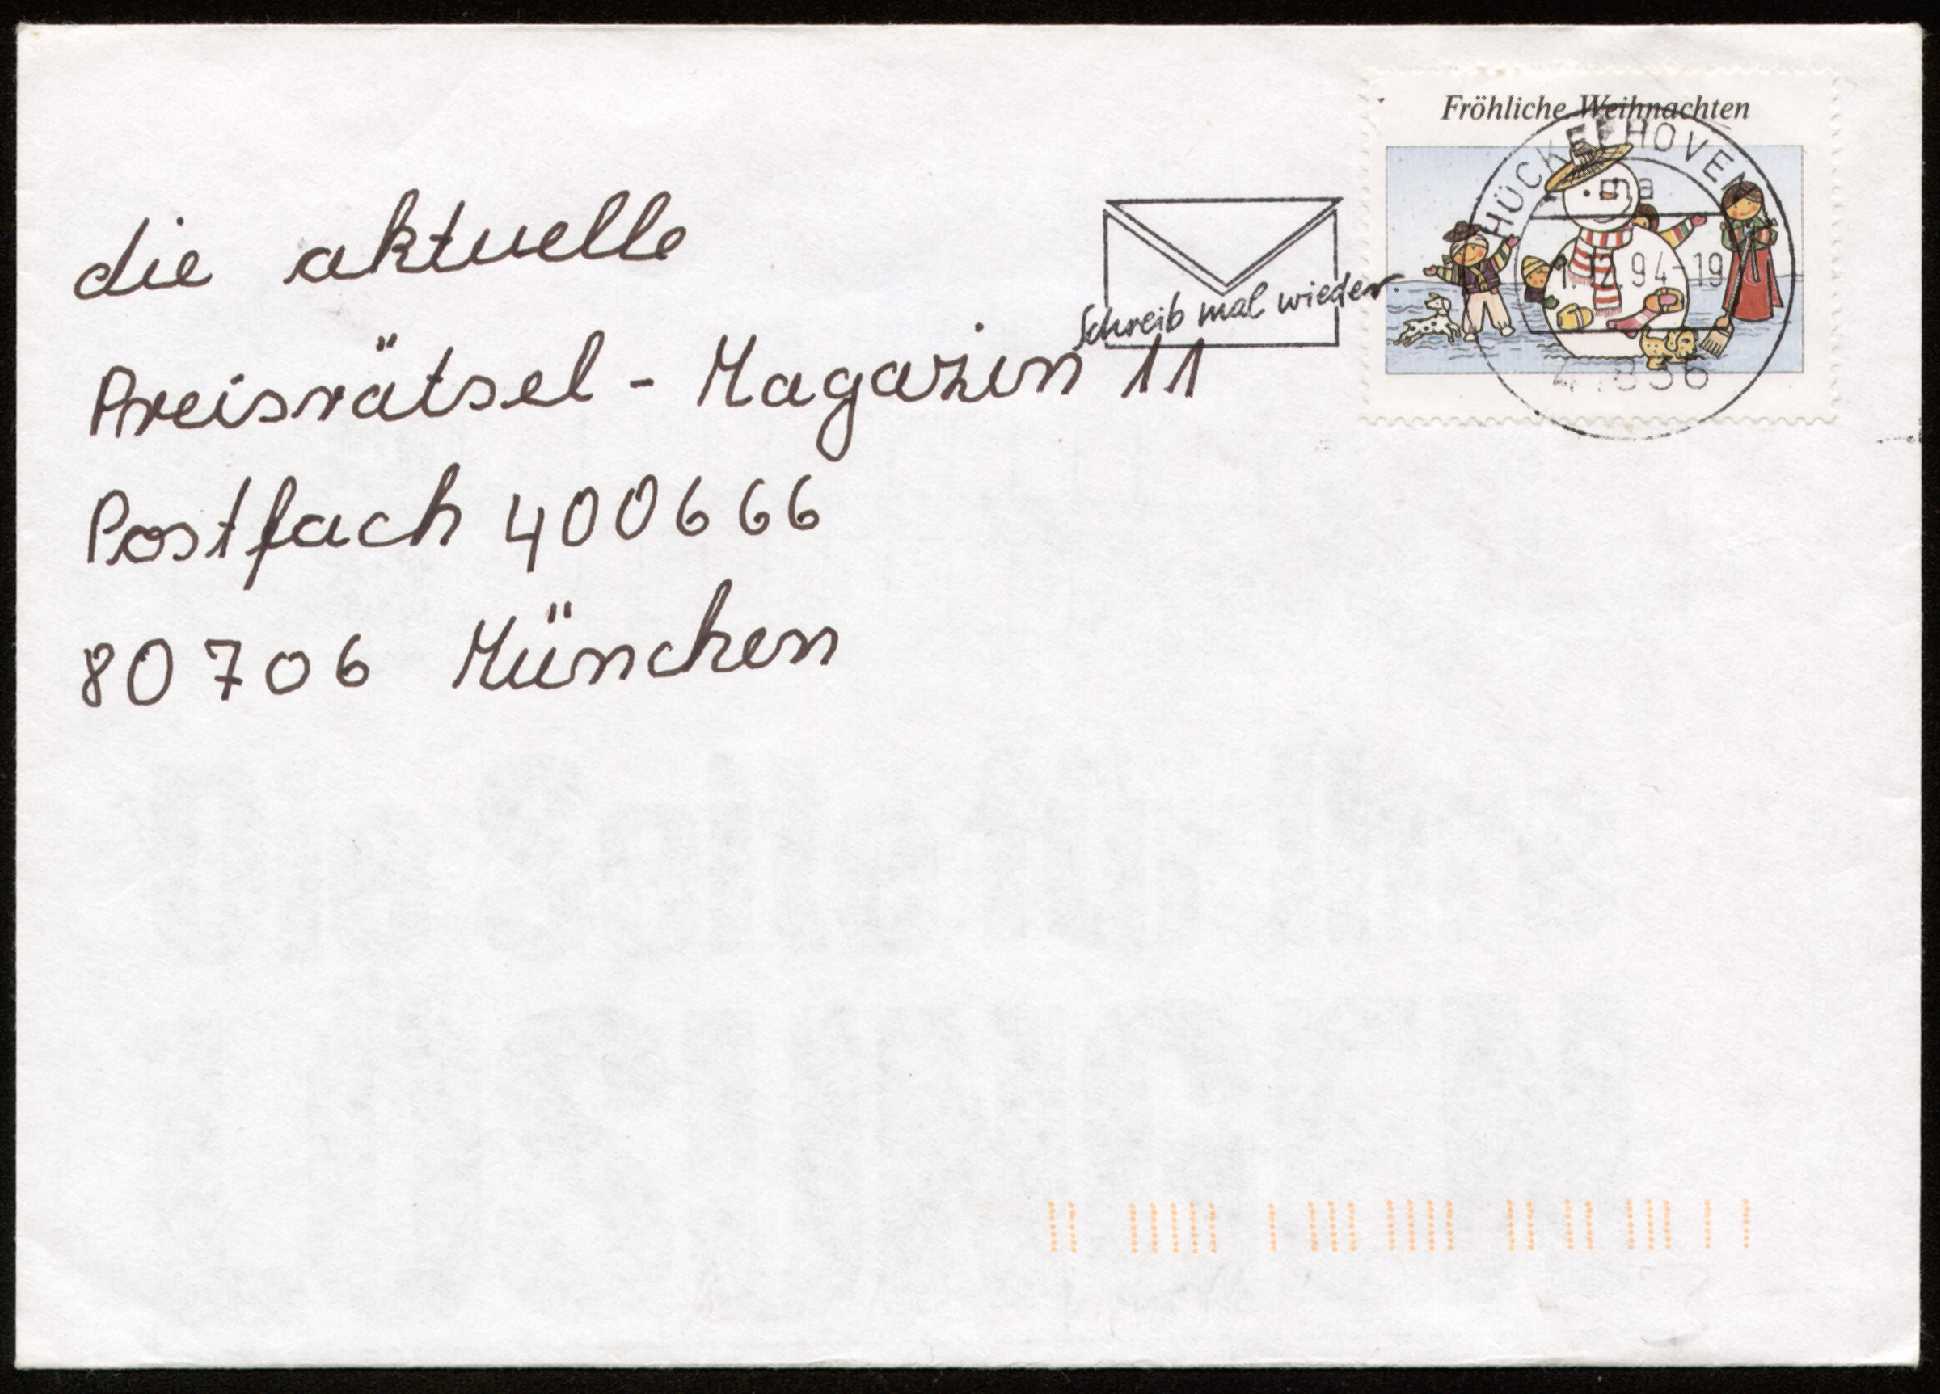 Fröhliche Weihnachten
HÜCKELHOVEN
ma
1.12.94-19
41836
Schreib mal wieder
die aktuelle
Preisrätsel - Magazin 11
Postfach 400666
80706 München